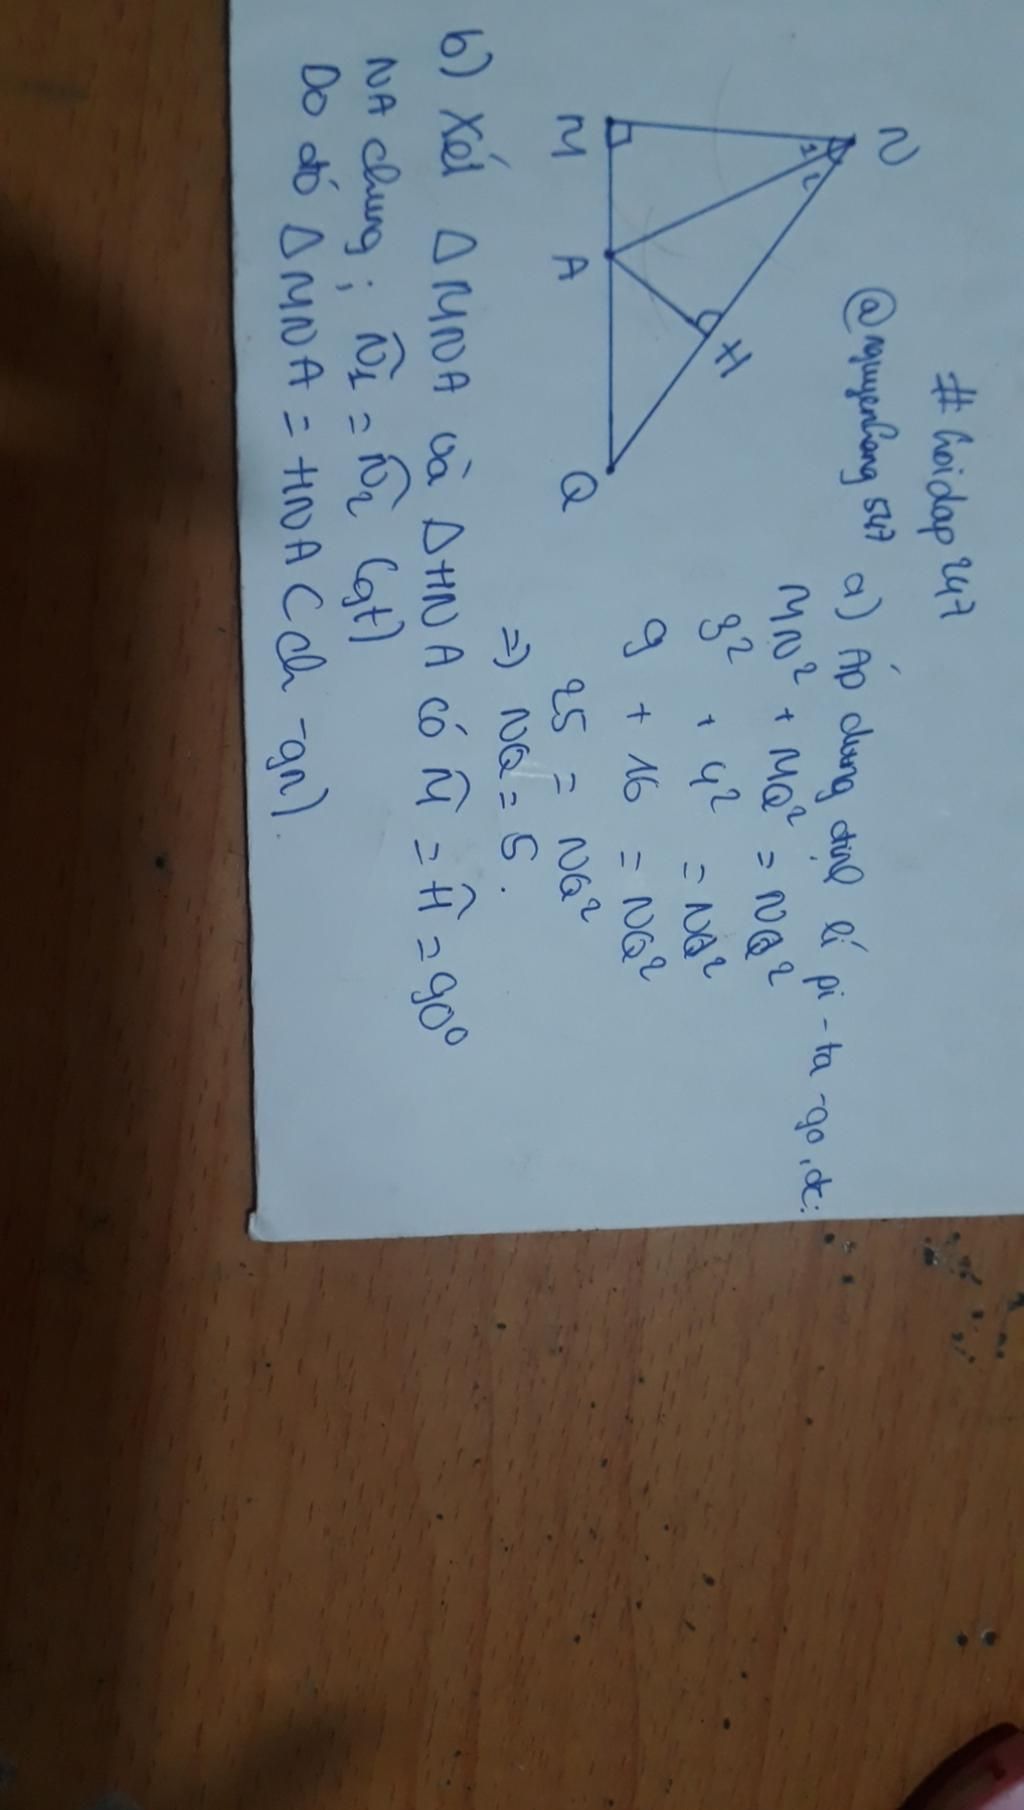 #hoidap247
@nguyenhang547
a) Áp dụng định lí pi-ta-go, dc:
MN² + MQ² = NQ²
3² + 4² = NQ²
9 + 16 = NQ²
25 = NQ²
=) NQ = 5.
N
1 2
H
M A Q
b) Xét Δ MNA và Δ HNA có M̂ = Ĥ = 90°
NA chung ; N̂1 = N̂2 (gt)
Do đó Δ MNA = HNA (ch-gn).